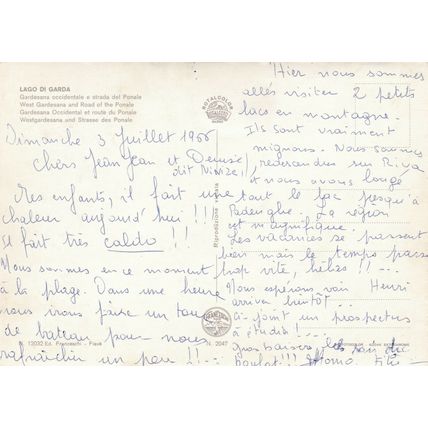 LAGO DI GARDA
Gardesana occidentale e strada del Ponale
West Gardesana and Road of the Ponale
Gardesana Occidental et route du Ponale
Westgardesana und Strasse des Ponale
Dimanche 3 Juillet 1966
Chers Jean Jean et Denise
dit
Mes enfants, il fait une
chaleur aujourd'hui !!!
Il fait très caldo !!!
Nous sommes en ce moment
à la plage. Dans une heure
nous irons faire un tour
de bateau pour nous
rafraîchir un peu !!--
N. 12032 Ed. Franceschi - Fiavè
ROTALCOLOR
Riproduzione
N. 2047
Hier nous sommes
allés visiter 2 petits
lacs en montagne.
Ils sont vraiment
mignons. Nous sommes
redescendus sur Riva
et nous avons longé
tout le lac jusqu'à
Padenghe. La région
est magnifique.
Les vacances se passent
bien mais le temps passe
trop vite, hélas !! -..
Nous espérons voir Henri
arriver bientôt...
Ci-joint un prospectus
à étudier !
Gros baisers
boulot !!!